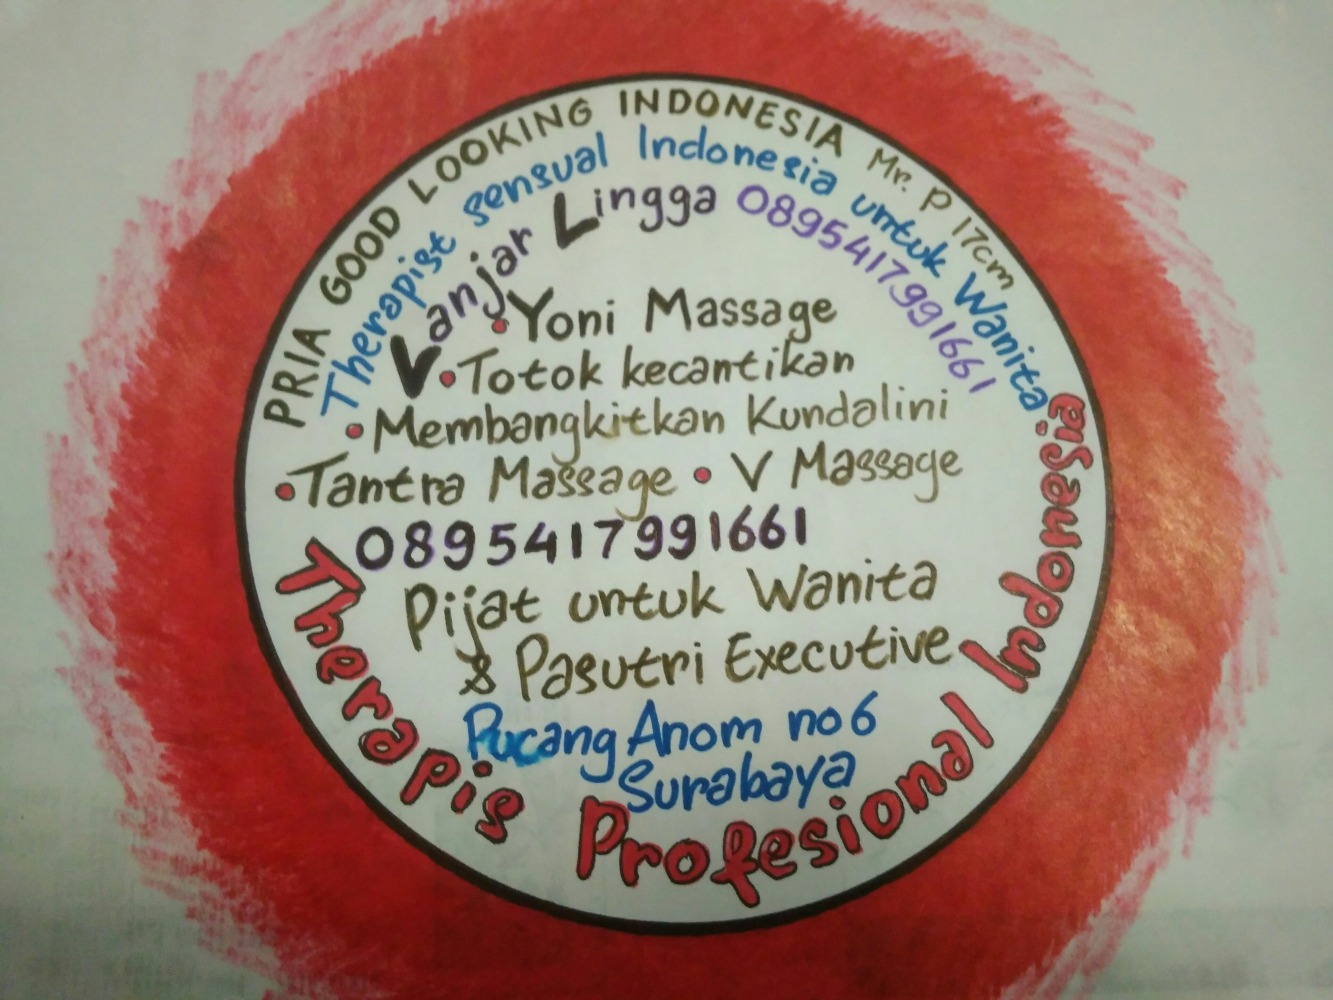 PRIA GOOD LOOKING INDONESIA Mr. P 17cm
Therapist sensual Indonesia untuk Wanita
Lanjar Lingga 0895417991661
• Yoni Massage
• Totok kecantikan
• Membangkitkan Kundalini
• Tantra Massage • V Massage
0895417991661
Pijat untuk Wanita
& Pasutri Executive
Pucang Anom no 6
Surabaya
Therapis Profesional Indonesia